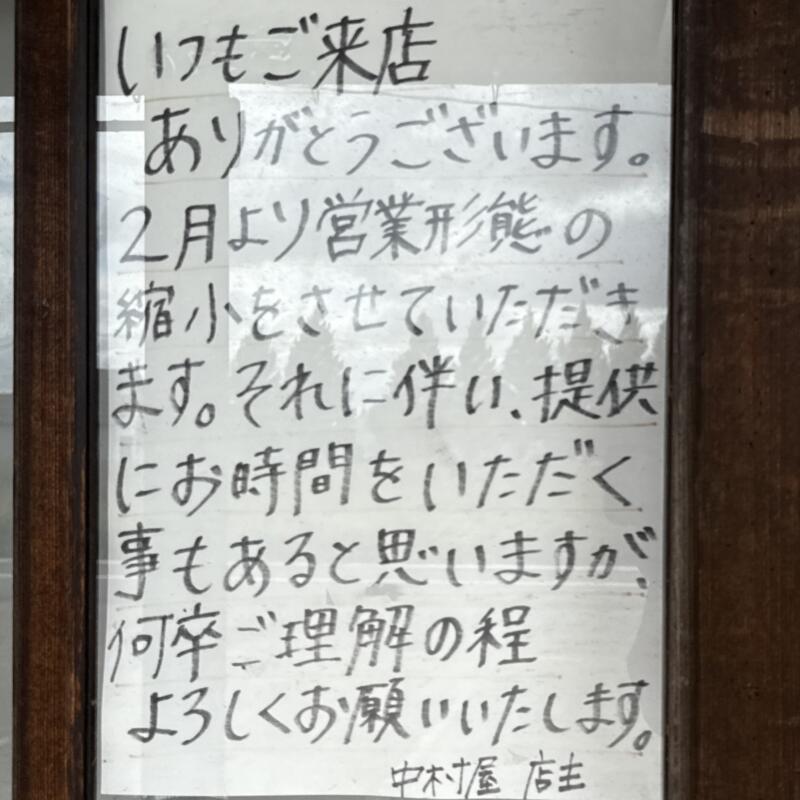 いつもご来店
ありがとうございます。
2月より営業形態の
縮小をさせていただき
ます。それに伴い、提供
にお時間をいただく
事もあると思いますが、
何卒ご理解の程
よろしくお願いいたします。
中村屋 店主